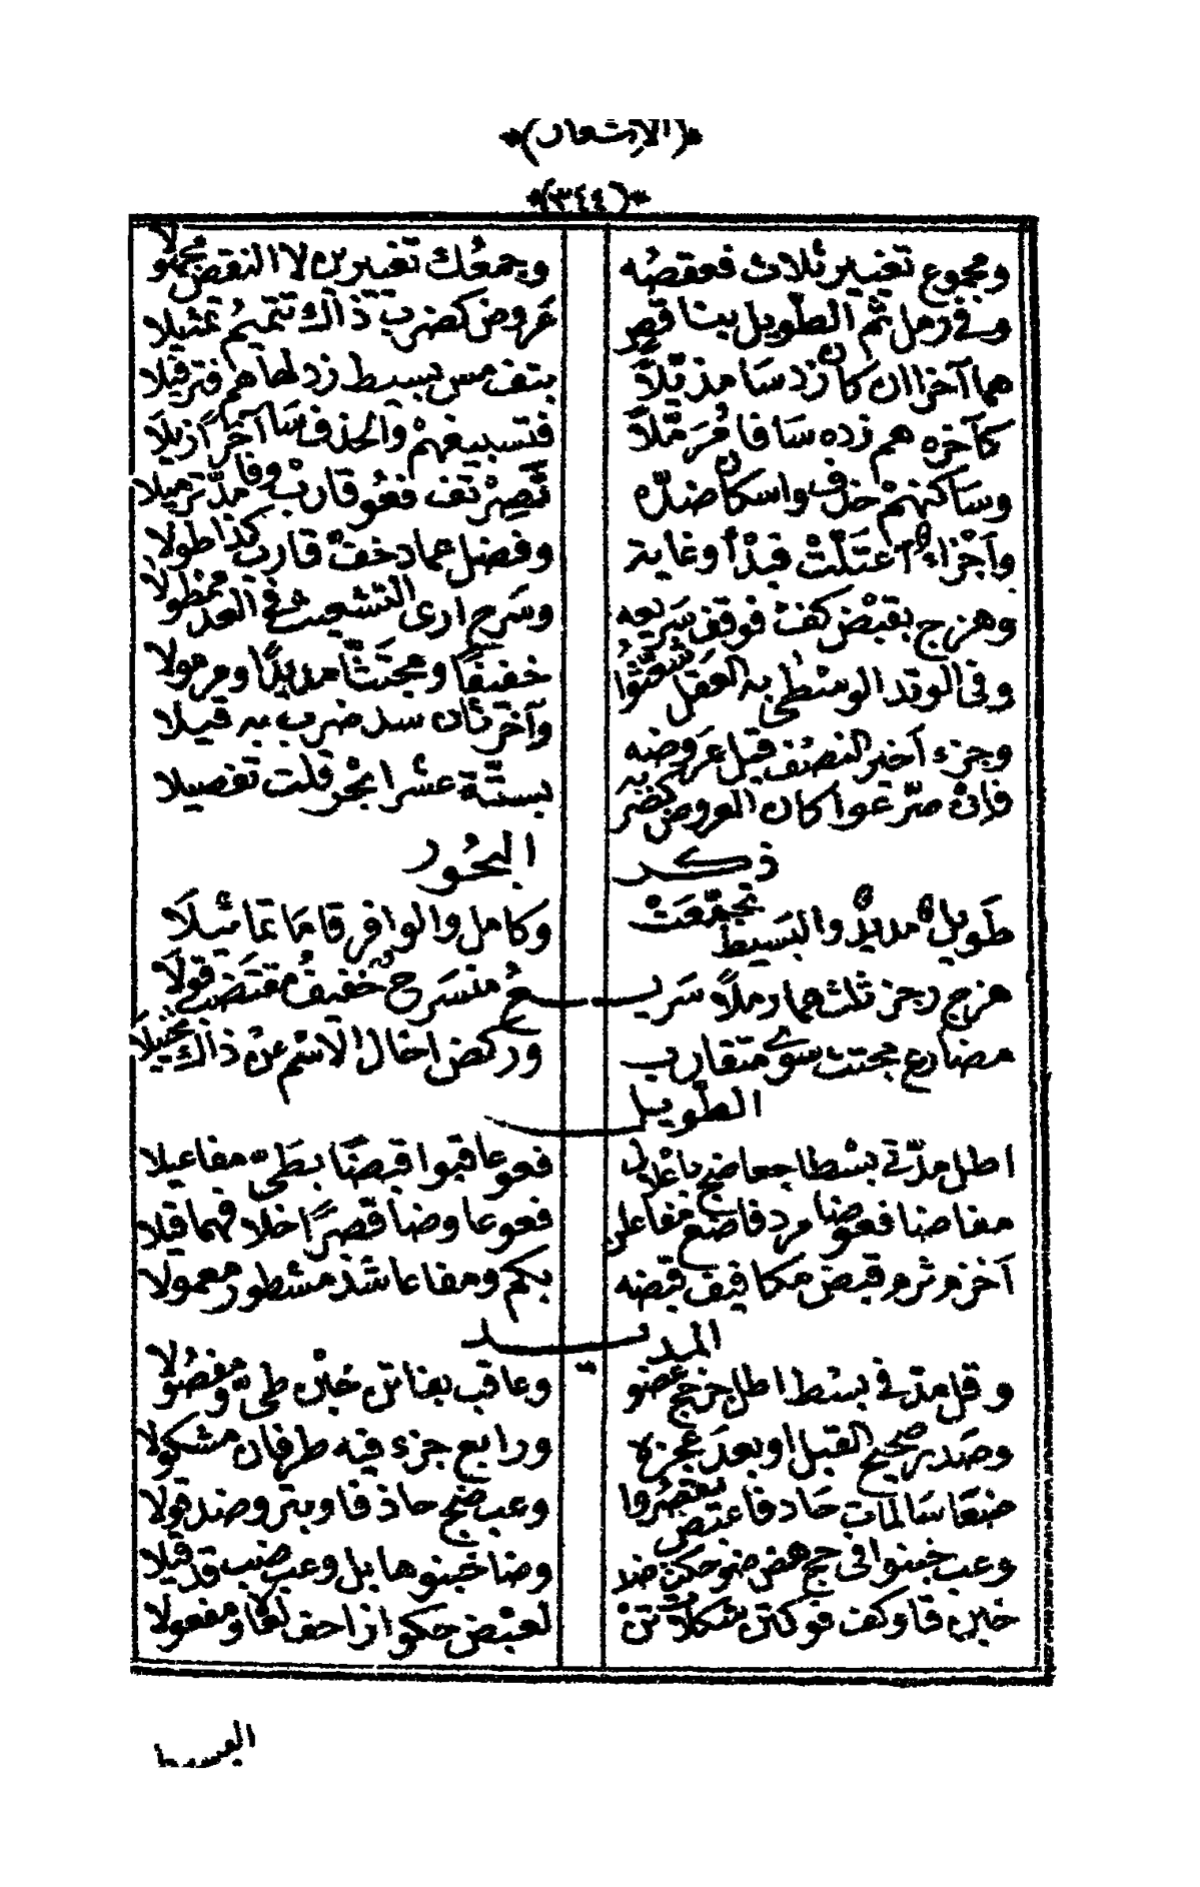 *(الاشعار)*
*(٣٤٤)*
ومجموع تغيير ثلاث فعقصُه وجمعُك تغييرين لا النقص مجمولا
وفي رمل ثم الطويل بينا قصِر عَروض كضرب ذاك تتميمُ تمثيلا
هما آخرا ان كان زد سَا مذيّلاً بتف مس بسيط زد لها هم فترفيلا
كآخره هم زده سَا فا مُرَمّلاً فتسبيغهمْ والحذف سَا آخراً ازيلاَ
وسَاكنهمْ خف واسكان ضلّه تقصِرْ تف فعُو قاربْ وفا مدّ ترميلا
وآجْزاء اعتَلّتْ فبذأ وغاية وفضل عماد خفْ قارب كذا طولا
وهزج بقبْض كفْ فوقف سَريعه وسَرح ارى التشعيث في العد ممطولا
وفي الوتد الوسْطى به العقل شعّثوُا خفيفًا ومجتثًّا مديدًا ومرمولا
وجزء آخير النصْف قيل عَروضه وآخر ثان سد ضرب به قيلا
فانْ صرّعوا كان العروض كضربه بستَّة عشر ابحُر قلت تفصيلا
ذكر البحُور
طَويل مديدٌ والبَسيط تجمّعَتْ وكامل والوافر قامَا تماثيلَا
هزج رجز ثلث هما رملاً سَريعُ منسَرح خفيفُ مقتضب قولاَ
مضارع مجتث سوى متقارب وركض اخال الاسْم عنْ ذاك تخييلَا
الطويل
اطل مدّ في بسْطا جعا ضح باعْلا لى فعوعا قبوا قبضًا بطَىّ مفاعيلا
مفاضنا فعوضا مرد فا ضع مفاعلن فعوعا وضا قصرًا خلا فهما قلا
آخز مرثر مر قبض مكا فيف قبضه بكم ومفاعا شذ مشطور معمولا
المديد
وقل مدّ في بسْط اطل جز جح عضو وعاقب بفاتن خبْن طىّ ومُفصُولا
وصَدر صحيح القبل اوبعدَ عجزه ورابع جزء فيه طرفان مشكولا
ضعَا سَالمات حاد فا عتص تقصُروا وعب ضح حاذ فا وبتر وضد قولا
وعب خبنوا في حج هض ضو حكن ضد وضا خبنو ها بل وعب ضب قد قيلا
خبن فا وكف فوكتن شكلاً تنْ لعبْض حكوا نزاحف لفا ومفعولا
البسيط